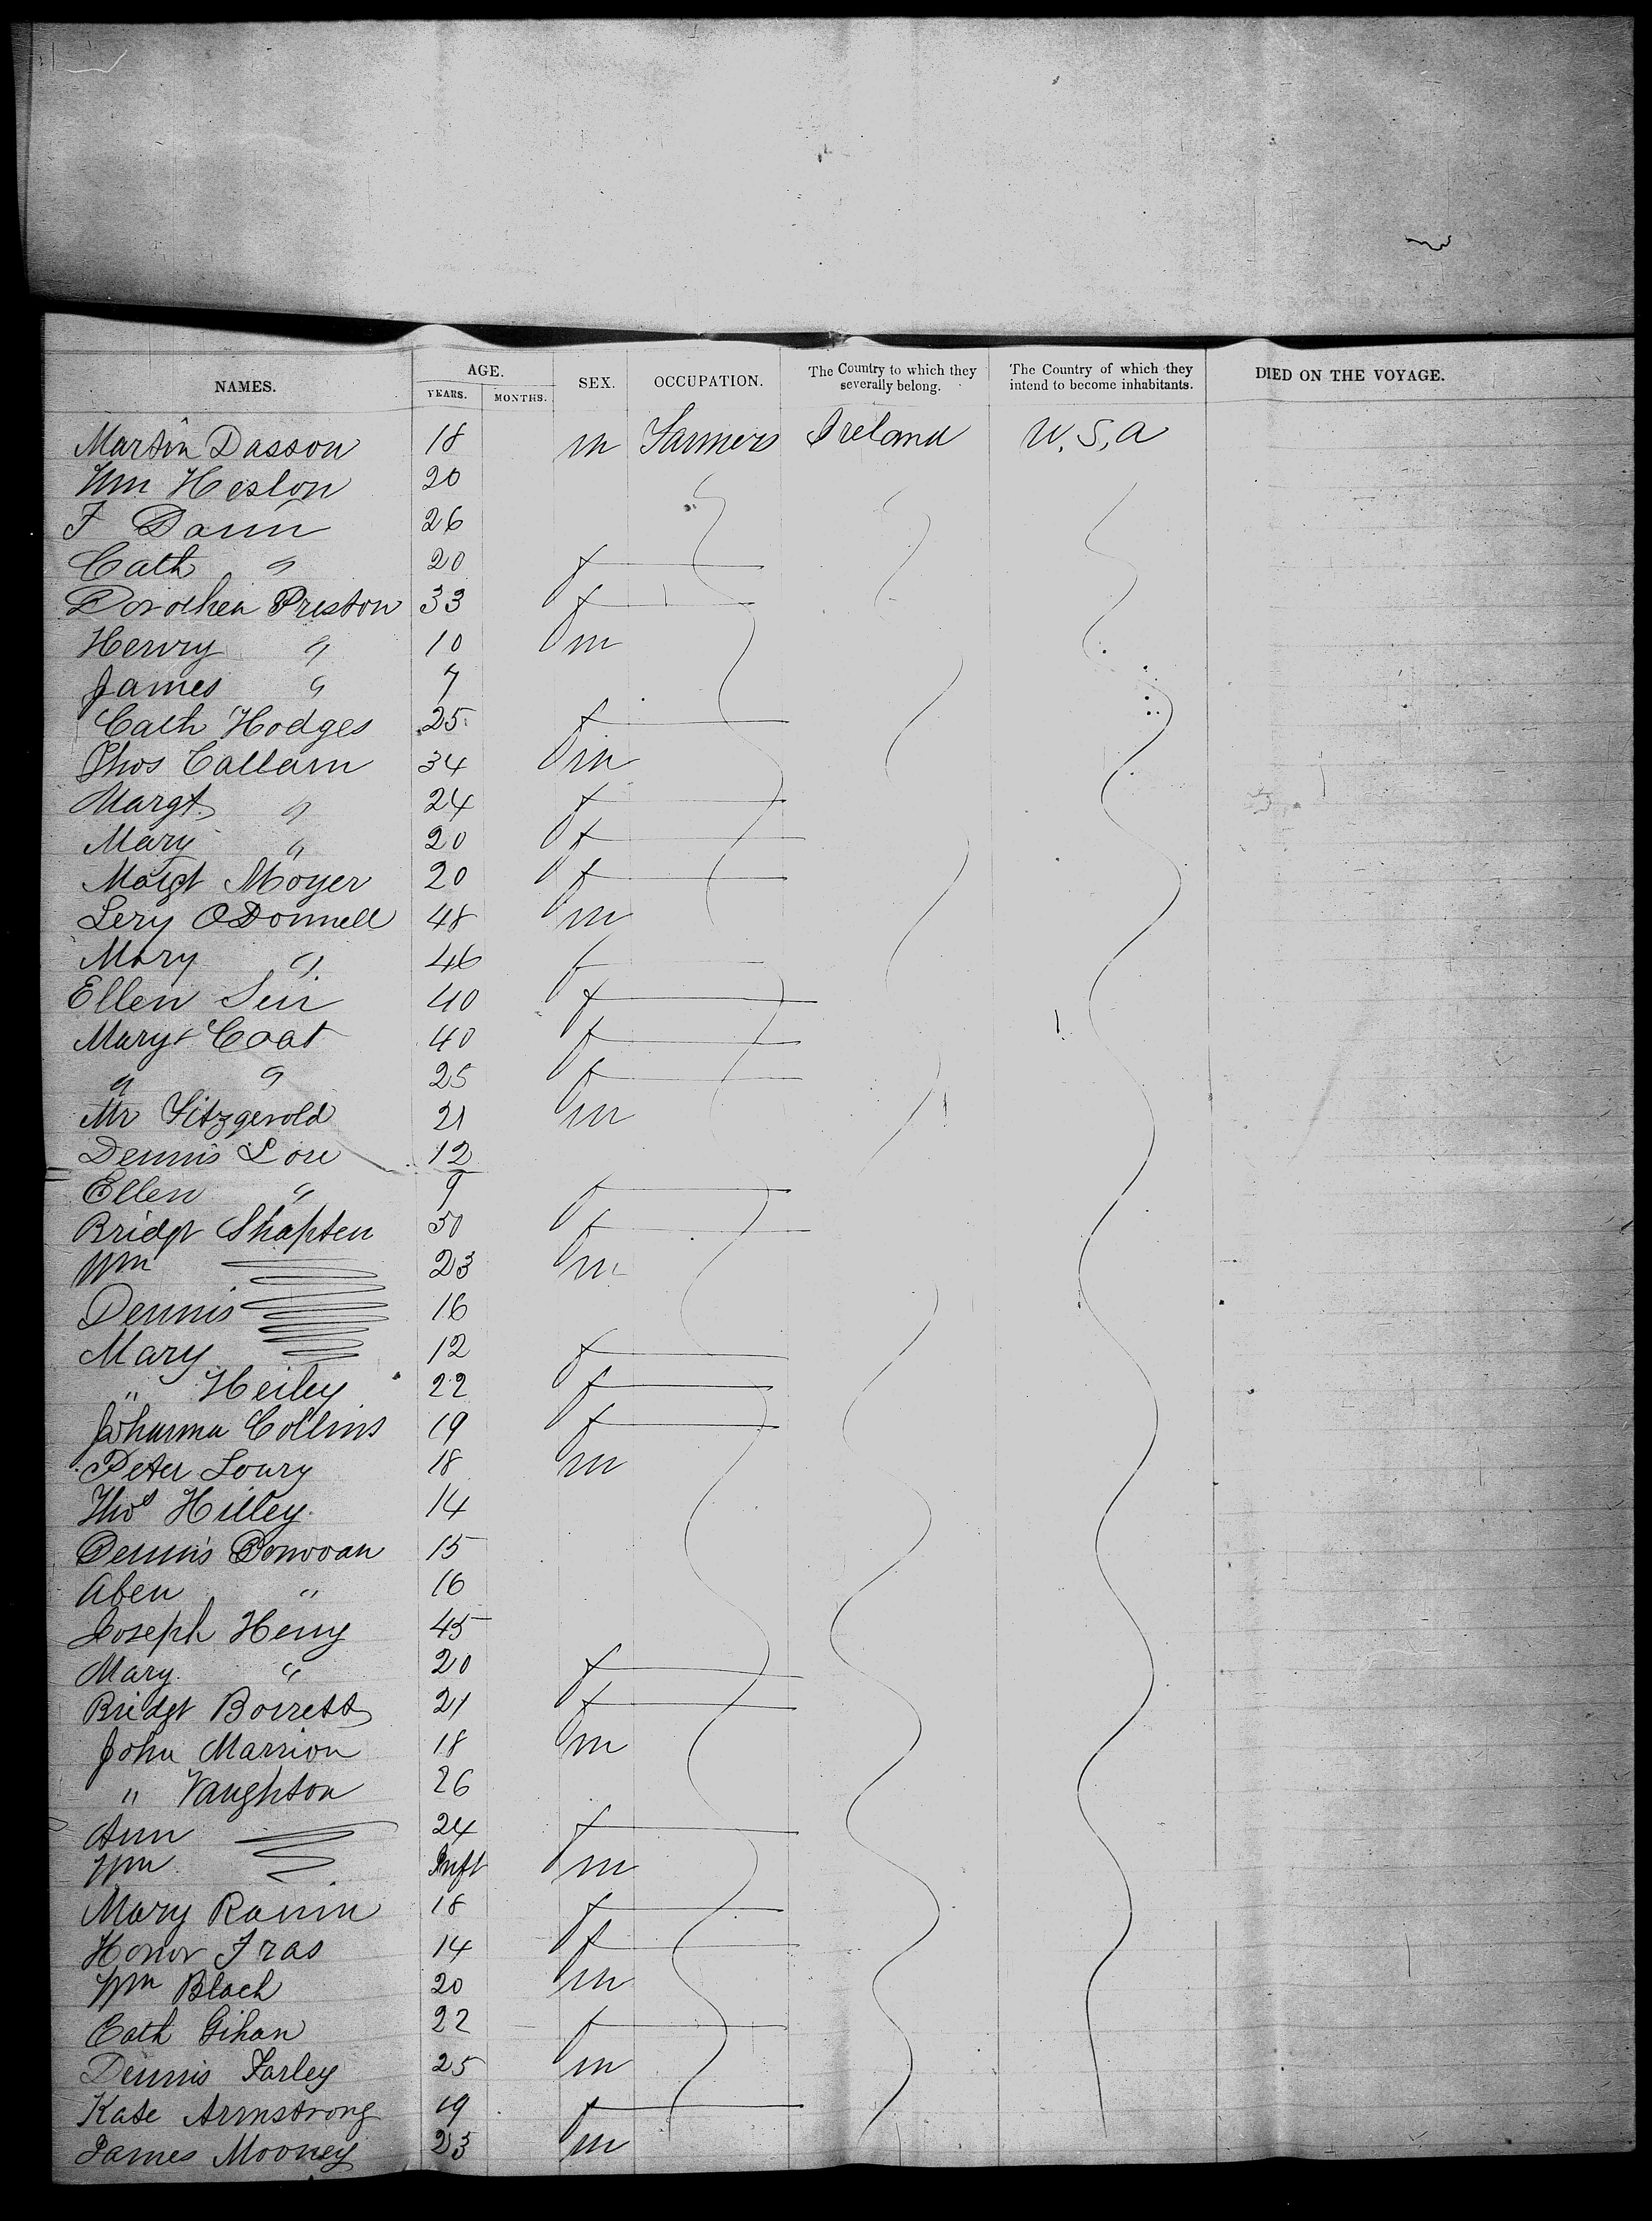 NAMES. AGE. YEARS. MONTHS. SEX. OCCUPATION. The Country to which they severally belong. The Country of which they intend to become inhabitants. DIED ON THE VOYAGE.
Martin Dasson 18 m Farmers Ireland U.S.A
Wm Heslon 20
F Dann 26
Cath " 20 f
Dorothea Preston 33 f
Henry " 10 m
James " 7
Cath Hodges 25 f
Thos Callam 34 m
Margt " 24 f
Mary " 20 f
Margt Moyer 20 f
Lery ODonnell 48 m
Mary " 46 f
Ellen 40 f
Mary Coat 40 f
" " 25 f
Mr Fitzgerold 21 m
Dennis Lou 12
Ellen " 9 f
Bridgt Shapten 50 f
Wm 23 m
Dennis 16
Mary 12 f
" Heiley 22 f
Johanna Collins 19 f
Peter Loury 18 m
Thos Hilley 14
Dennis Donovan 15
Aben " 16
Joseph Heny 45
Mary " 20 f
Bridgt Boirett 21 f
John Marrion 18 m
" Vaughton 26
Ann 24 f
Wm Inft m
Mary Rannin 18 f
Honor Fras 14 f
Wm Blach 20 m
Cath Gihan 22 f
Dennis Farley 25 m
Kate Armstrong 19 f
James Mooney 23 m